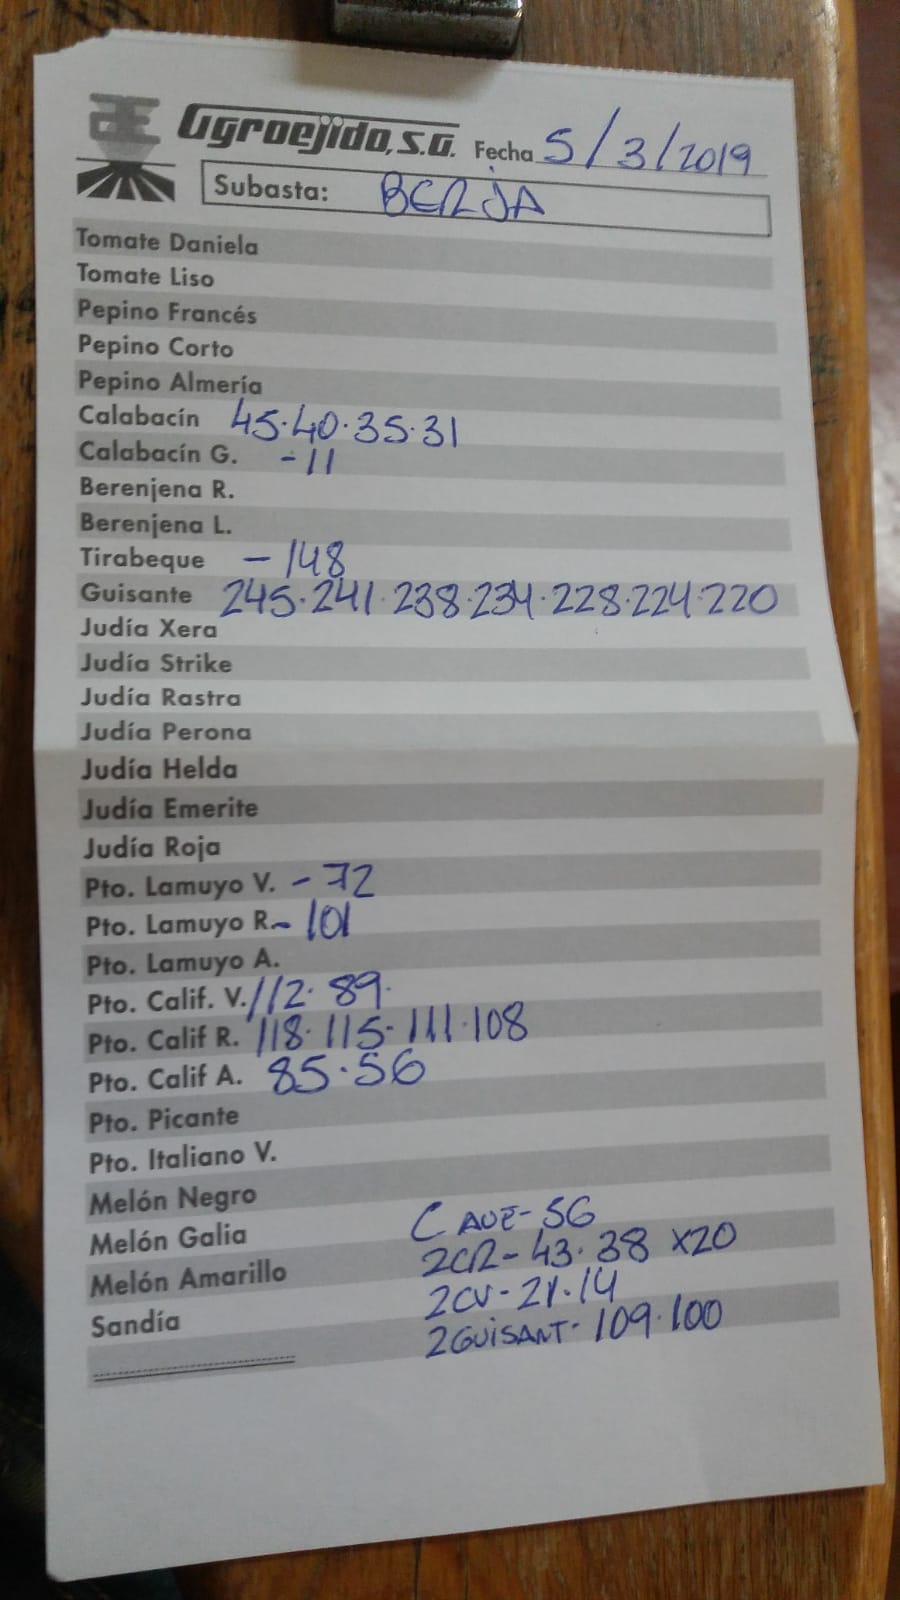 Agroejido, S.A. Fecha 5/3/2019
Subasta: BERJA
Tomate Daniela
Tomate Liso
Pepino Francés
Pepino Corto
Pepino Almería
Calabacín 45·40·35·31
Calabacín G. -11
Berenjena R.
Berenjena L.
Tirabeque - 148
Guisante 245·241·238·234·228·224·220
Judía Xera
Judía Strike
Judía Rastra
Judía Perona
Judía Helda
Judía Emerite
Judía Roja
Pto. Lamuyo V. - 72
Pto. Lamuyo R. - 101
Pto. Lamuyo A.
Pto. Calif. V. 112·89·
Pto. Calif R. 118·115·111·108
Pto. Calif A. 85·56
Pto. Picante
Pto. Italiano V.
Melón Negro
Melón Galia C AVE- 56
Melón Amarillo 2CR- 43·38 x20
Sandía 2CV- 21·14
2GUISANT- 109·100